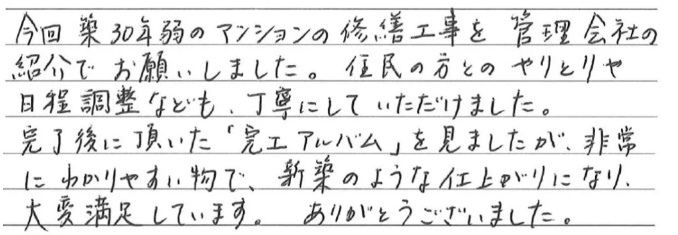 今回築30年弱のマンションの修繕工事を管理会社の
紹介でお願いしました。住民の方とのやりとりや
日程調整なども、丁寧にしていただけました。
完了後に頂いた「完工アルバム」を見ましたが、非常
にわかりやすい物で、新築のような仕上がりになり、
大変満足しています。ありがとうございました。